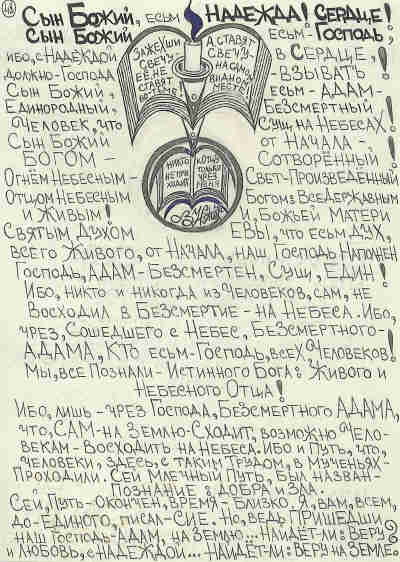 48
Сын Божий, есьм НАДЕЖДА! Сердце!
Сын Божий есьм-Господь,
ибо, с Надеждой в Сердце,
должно-Господа -взывать!
Сын Божий, есьм-Адам-
Единородный, Безсмертный
Человек, что Сущ, на Небесах!
Сын Божий от Начала-
Богом- Сотворённый!
Огнём Небесным- Свет-Произведённый
Отцом Небесным Богом: Вседержавным
и Живым! И, Божьей Матери
Святым Духом Евы, что есьм Дух,
всего Живого, от Начала, наш Господь Наполнен
Господь, Адам-Безсмертен, Сущ, Един!
Ибо, никто и никогда из Человеков, сам, не
восходил в Безсмертие-на Небеса. Ибо,
чрез, Сошедшего с Небес, Безсмертного-
Адама, Кто есьм-Господь, всех Человеков!
Мы, все Познали-Истинного Бога: Живого и
Небесного Отца!
Ибо, лишь-чрез Господа, Безсмертного Адама,
что, Сам-на Землю-Сходит, возможно Чело-
векам-Восходить на Небеса. Ибо и Путь, что,
человеки, здесь, с таким Трудом, в мученьях-
проходили. Сей Млечный Путь, был назван-
Познание: добра и зла.
Сей, Путь-окончен, время-близко. Я, вам, всем,
до-Единого, писал-сие. Но, ведь Пришедши,
наш Господь-Адам, на Землю... Найдёт-ли: Веру?
и Любовь, с Надеждой... Найдёт-ли: Веру на Земле.
Зажехши
свечу
её, не
ставят
А ставят
свечу-
на само,
видном
месте!
Никто
не при
ходит
к Отцу
только
чрез
меня